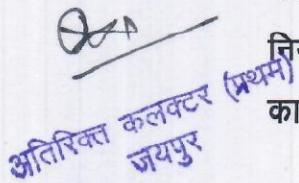 अतिरिक्त कलक्टर (प्रथम)
जयपुर